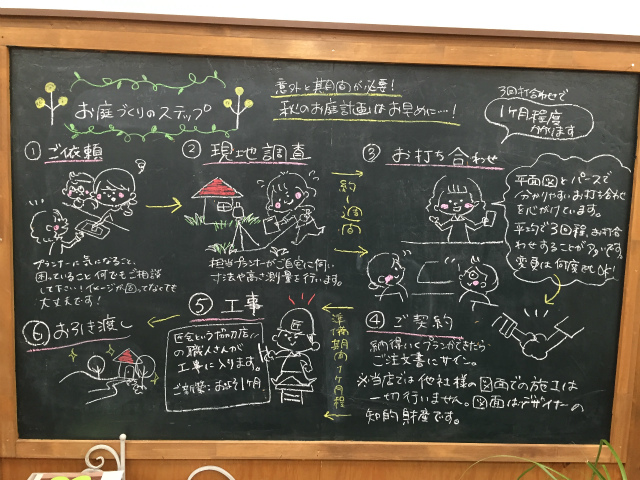 お庭づくりのステップ
意外と期間が必要!
秋のお庭計画はお早めに…!
3回打合わせで
1ヶ月程度
かかります
① ご依頼
プランナーに気になること、
困っていること何でもご相談
して下さい!イメージが固ってなくても
大丈夫です!
② 現地調査
担当プランナーがご自宅に伺い
寸法や高さ測量を行います。
約一週間
③ お打ち合わせ
平面図とパースで
分かりやすいお打ち合わせ
を心がけています。
平均で3回程、お打合
わせすることが多いです。
変更は何度でもOK!
④ ご契約
納得いくプランができたら
ご注文書にサイン。
※当店では他社様の図面での施工は
一切行いません。図面はデザイナーの
知的財産です。
準備期間1ヶ月程
⑤ 工事
匠
匠会という協力店
の職人さんが
工事に入ります。
ご新築:およそ1ヶ月
⑥ お引き渡し